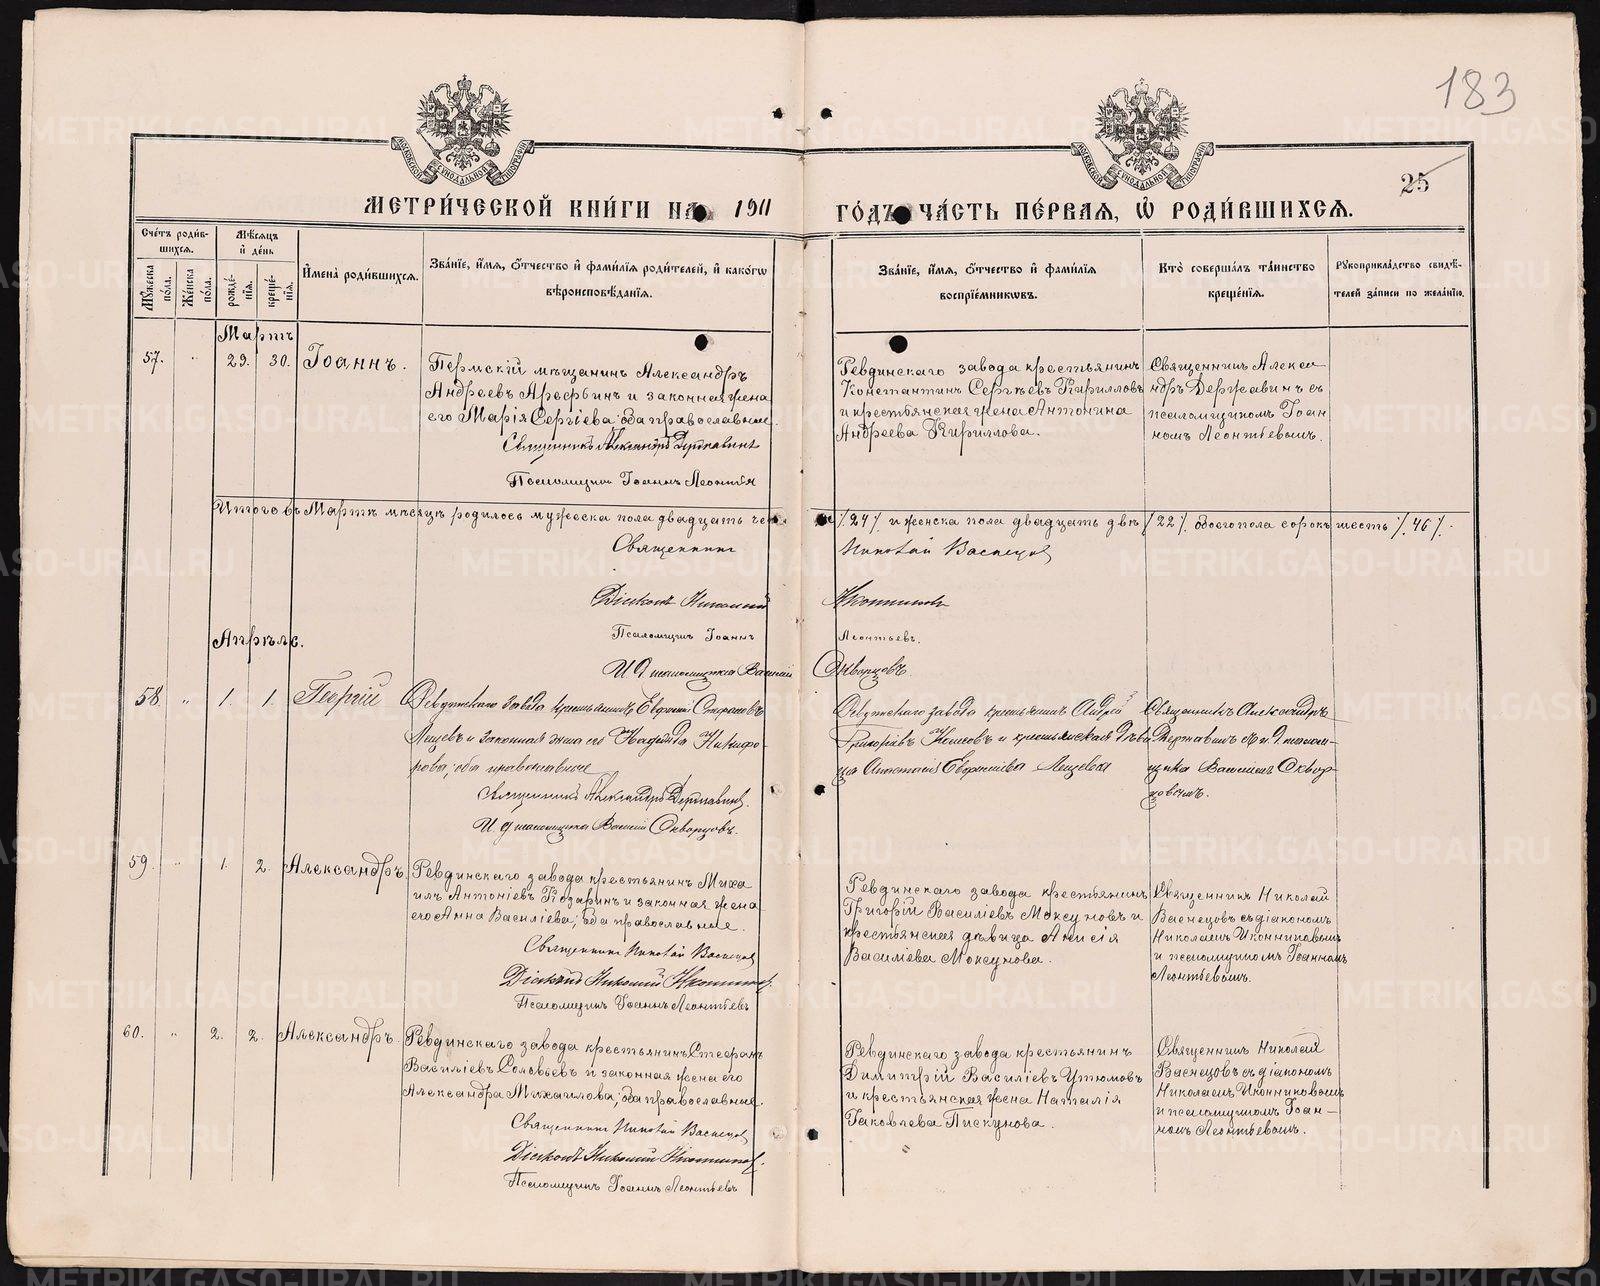 183
25
МЕТРИ́ЧЕСКОЙ КНИ́ГИ НА 1911 ГО́ДЪ ЧА́СТЬ ПЕ́РВАЯ, Ѡ РОДИ́ВШИХСЯ.
Сче́тъ роди́в-
шихся.
Мꙋ́жеска по́ла.
Же́нска по́ла.
Мѣ́сяцъ
и́ де́нь
рожде́-
нїя.
креще́-
нїя.
И́мена̀ роди́вшихся.
Зва́нїе, и́мя, ѻ́тчество и́ фами́лїя роди́телей, и́ како́гѡ
вѣроисповѣ́данїя.
Зва́нїе, и́мя, ѻ́тчество и́ фами́лїя
воспрїе́мникѡвъ.
Кто̀ соверша́лъ та́инство
креще́нїя.
Рꙋкоприкла́дство свидѣ́-
телей за́писи по жела́нїю.
Мартъ
57. " 29. 30. Іоаннъ.
Пермскій мѣщанинъ Александръ
Андреевъ Арефьинъ и законная жена
его Марія Сергіева; оба православные.
Священникъ Александръ Державинъ
Псаломщикъ Іоаннъ Леонтьев
Ревдинскаго завода крестьянинъ
Константинъ Сергѣевъ Кирилловъ
и крестьянская жена Антонина
Андреева Кириллова.
Священникъ Алекса-
ндръ Державинъ съ
псаломщикомъ Іоан
номъ Леонтьевымъ.
Итого въ Мартѣ мѣсяцѣ родилось мужеска пола двадцать че /.24/. и женска пола двадцать двѣ /.22/. обоего пола сорокъ шесть /.46/.
Священникъ Николай Васнецов
Діаконъ Николай Иконников
Псаломщикъ Іоаннъ Леонтьевъ.
И. д. псаломщика Василій Скворцовъ.
Апрѣль.
58. " 1. 1. Георгій
Ревдинскаго завода крестьянинъ Евфимій Стефановъ
Лещевъ и законная жена его Надежда Никифо-
рова; оба православные
Священникъ Александръ Державинъ.
И. д. псаломщика Василій Скворцовъ.
Ревдинскаго завода крестьянинъ Андрей
Григорьевъ и крестьянская дѣви-
ца Анастасія Евфиміева Лещева
Священникъ Александръ
Державинъ съ и. д. псалом-
щика Василіемъ Сквор-
цовымъ.
59. " 1. 2. Александръ.
Ревдинскаго завода крестьянинъ Миха
илъ Антоніевъ Козаринъ и законная жена
его Анна Василіева; оба православные.
Священникъ Николай Васнецов
Діаконъ Николай Иконников.
Псаломщикъ Іоаннъ Леонтьевъ
Ревдинскаго завода крестьянинъ
Григорій Василіевъ Моксуновъ и
крестьянская дѣвица Анисія
Василіева Моксунова.
Священникъ Николай
Васнецовъ съ діакономъ
Николаемъ Иконниковымъ
и псаломщикомъ Іоанномъ
Леонтьевымъ.
60. " 2. 2. Александръ.
Ревдинскаго завода крестьянинъ Стефанъ
Василіевъ Соловьевъ и законная жена его
Александра Михаилова; оба православные.
Священникъ Николай Васнецов
Діаконъ Николай Иконников.
Псаломщикъ Іоаннъ Леонтьевъ
Ревдинскаго завода крестьянинъ
Димитрій Василіевъ Утюмовъ
и крестьянская жена Наталія
Іаковлева Пискунова.
Священникъ Николай
Васнецовъ съ діакономъ
Николаемъ Иконниковымъ
и псаломщикомъ Іоан-
номъ Леонтьевымъ.